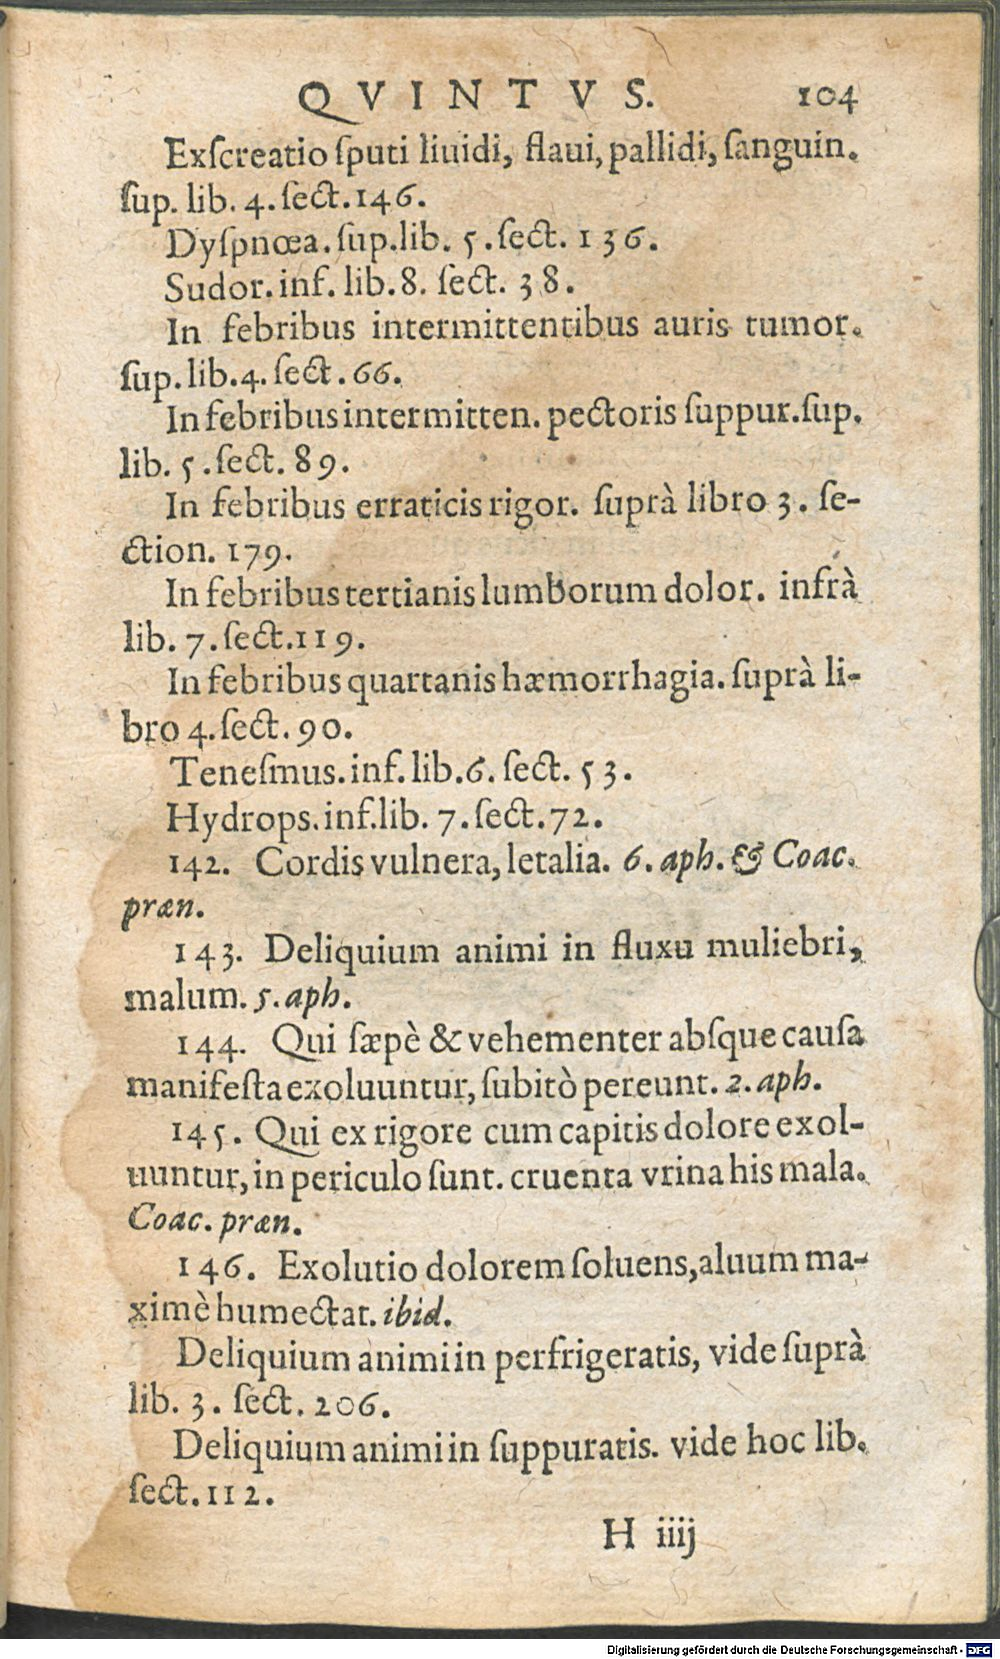 QVINTVS. 104
Exſcreatio ſputi liuidi, flaui, pallidi, ſanguin.
ſup. lib. 4. ſect. 146.
Dyſpnœa. ſup. lib. 5. ſect. 136.
Sudor. inf. lib. 8. ſect. 38.
In febribus intermittentibus auris tumor.
ſup. lib. 4. ſect. 66.
In febribus intermitten. pectoris ſuppur. ſup.
lib. 5. ſect. 89.
In febribus erraticis rigor. ſuprà libro 3. ſe-
ction. 179.
In febribus tertianis lumborum dolor. infrà
lib. 7. ſect. 119.
In febribus quartanis hæmorrhagia. ſuprà li-
bro 4. ſect. 90.
Teneſmus. inf. lib. 6. ſect. 53.
Hydrops. inf. lib. 7. ſect. 72.
142. Cordis vulnera, letalia. 6. aph. & Coac.
præn.
143. Deliquium animi in fluxu muliebri,
malum. 5. aph.
144. Qui ſæpè & vehementer abſque cauſa
manifeſta exoluuntur, ſubitò pereunt. 2. aph.
145. Qui ex rigore cum capitis dolore exol-
uuntur, in periculo ſunt. cruenta vrina his mala.
Coac. præn.
146. Exolutio dolorem ſoluens, aluum ma-
ximè humectat. ibid.
Deliquium animi in perfrigeratis, vide ſuprà
lib. 3. ſect. 206.
Deliquium animi in ſuppuratis. vide hoc lib.
ſect. 112.
H iiij
Digitalisierung gefördert durch die Deutsche Forschungsgemeinschaft - DFG